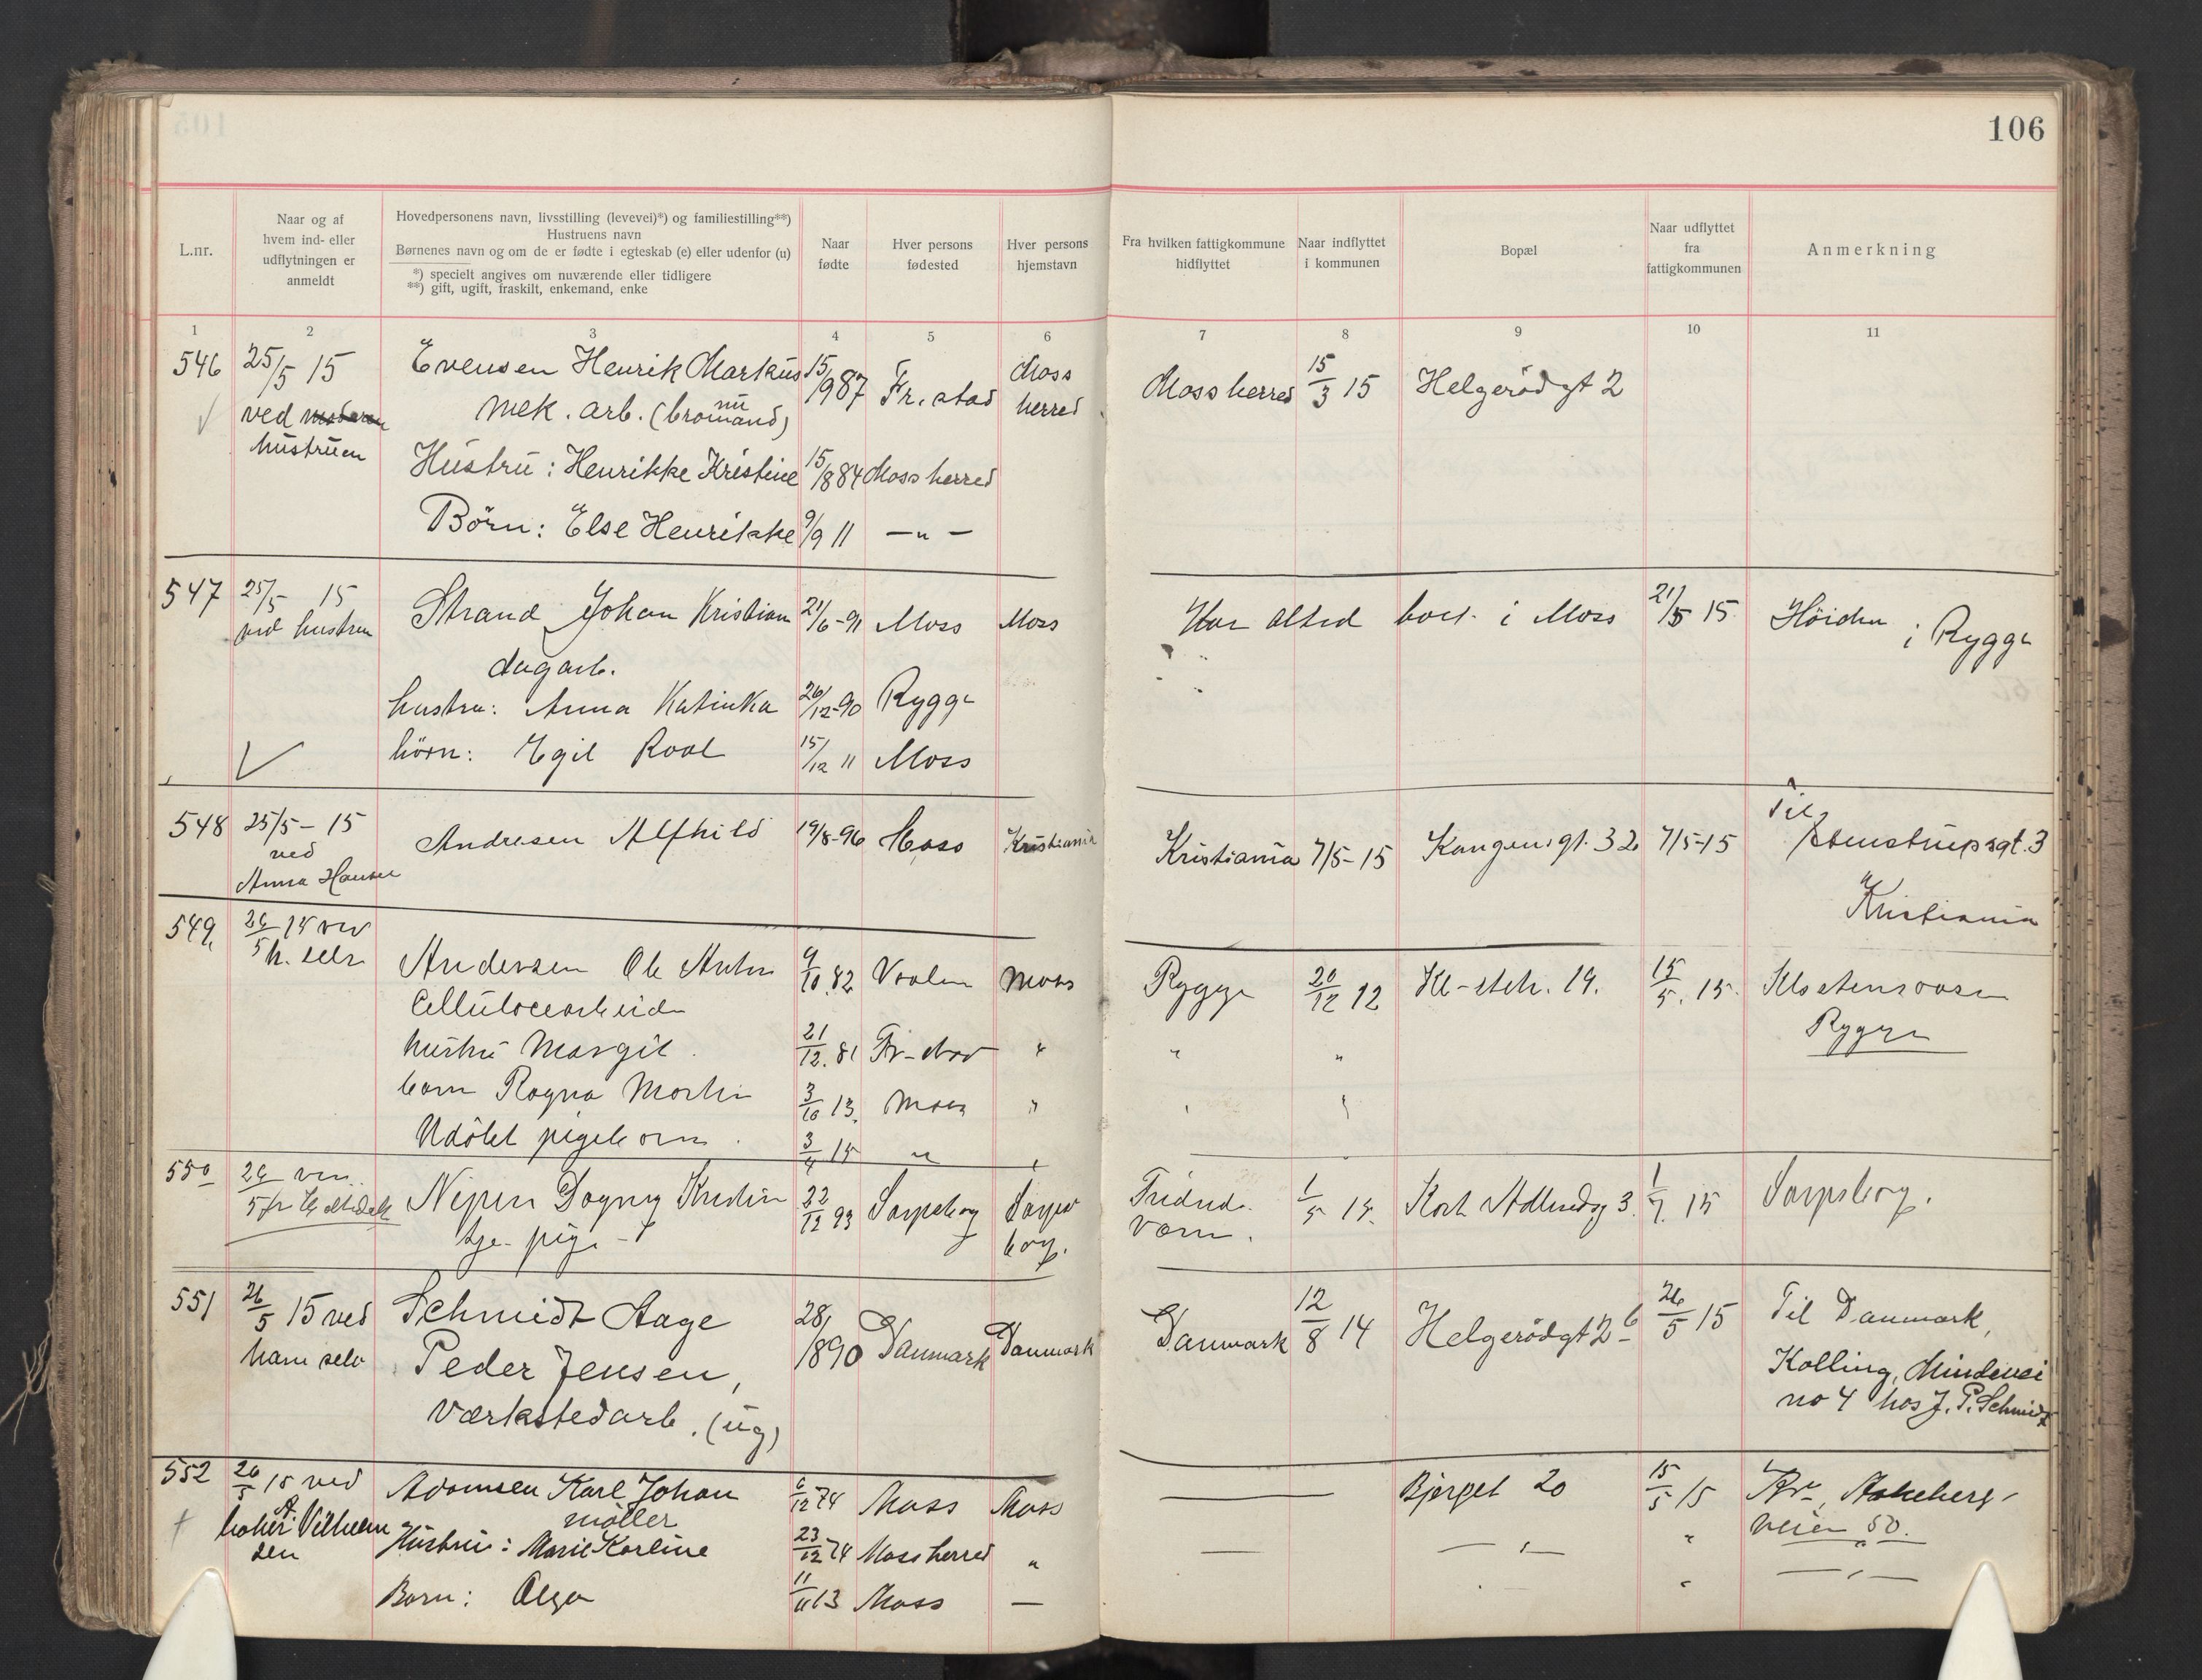 106
L.nr.
Naar og af
hvem ind- eller
udflytningen er
anmeldt
Hovedpersonens navn, livsstilling (levevei)*) og familiestilling**)
Hustruens navn
Børnenes navn og om de er fødte i egteskab (e) eller udenfor (u)
*) specielt angives om nuværende eller tidligere
**) gift, ugift, fraskilt, enkemand, enke
Naar
fødte
Hver persons
fødested
Hver persons
hjemstavn
Fra hvilken fattigkommune
hidflyttet
Naar indflyttet
i kommunen
Bopæl
Naar udflyttet
fra
fattigkommunen
Anmerkning
1 2 3 4 5 6 7 8 9 10 11
546 25/5 15 Evensen Henrik Markus 15/9 87 Fr.stad Moss herred Moss herred 15/3 15 Helgerødgt 2
ved hustruen mek. arb. (nu bromand)
Hustru: Henrikke Kristine 15/8 84 Moss herred
Börn: Else Henrikke 9/9 11 —"—
547 25/5 15 Strand Johan Kristian 21/6-91 Moss Moss Har altid boet i Moss 21/5 15 Höiden i Rygge
ved hustru
dagarb.
hustru: Anna Katinka 26/12-90 Rygge
börn: Egil Roal 15/12 11 Moss
548 25/5-15 Andresen Alfhild 19/8-96 Moss Kristiania Kristiania 7/5-15 Kongensgt. 32 7/5-15 Til Stenstrupsgt. 3
ved
Anna Hansen
Kristiania
549 15 ved
h. selv Andersen Ole Anton 9/10. 82 Vaaler Moss Rygge 20/12 12 Kl-stch. 19. 15/5. 15.
Rygge
Cellulosearbeider
hustru Margit 21/12. 81 Fr-stad " " "
barn Ragna 3/10 13. Moss "
Udöbt pigebarn. 3/4 15 "
550 Dagny 22/12 93 Sarpsborg Sarpsborg. 1/5 15. 3. 15 Sarpsborg.
tje. pige
551 26/5 15 ved Schmidt Aage 28/1 890 Danmark Danmark Danmark 12/8 14 Helgerödgt 26 26/5 15 Til Danmark,
ham selv Peder Jensen, Kolling, Mindevei
værkstedarb. (ug) no 4 hos J. P. Schmidt
552 26/5 15 ved Adamsen Karl Johan 6/12 74 Moss Moss — Bjerget 20 15/5 15
möller
baker A. Vilhelmsen Hustru: Marie Karline 23/12 74 Moss herred " — —"— " veien 50.
Barn: Olga 11/11 13 Moss — " —"—